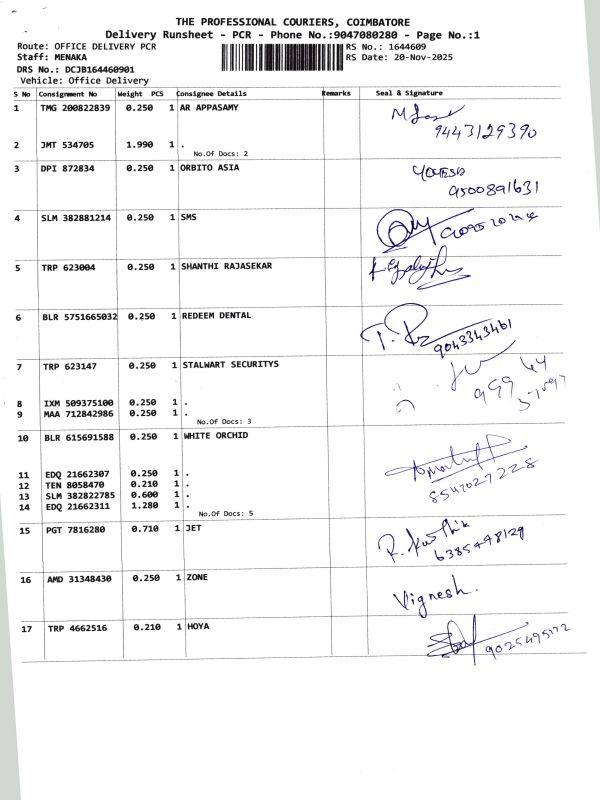 THE PROFESSIONAL COURIERS, COIMBATORE
Delivery Runsheet - PCR - Phone No.:9047080280 - Page No.:1
Route: OFFICE DELIVERY PCR RS No.: 1644609
Staff: MENAKA RS Date: 20-Nov-2025
DRS No.: DCJB164460901
Vehicle: Office Delivery
S No Consignment No Weight PCS Consignee Details Remarks Seal & Signature
1 TMG 200822839 0.250 1 AR APPASAMY
9443129390
2 JMT 534705 1.990 1 .
No.Of Docs: 2
3 DPI 872834 0.250 1 ORBITO ASIA
9500891631
4 SLM 382881214 0.250 1 SMS
5 TRP 623004 0.250 1 SHANTHI RAJASEKAR
6 BLR 5751665032 0.250 1 REDEEM DENTAL
9043343461
7 TRP 623147 0.250 1 STALWART SECURITYS
8 IXM 509375100 0.250 1 .
9 MAA 712842986 0.250 1 .
No.Of Docs: 3
10 BLR 615691588 0.250 1 WHITE ORCHID
11 EDQ 21662307 0.250 1 .
12 TEN 8058470 0.210 1 .
13 SLM 382822785 0.600 1 .
14 EDQ 21662311 1.280 1 .
8547027228
No.Of Docs: 5
15 PGT 7816280 0.710 1 JET
R. Karthik
16 AMD 31348430 0.250 1 ZONE
Vignesh.
17 TRP 4662516 0.210 1 HOYA